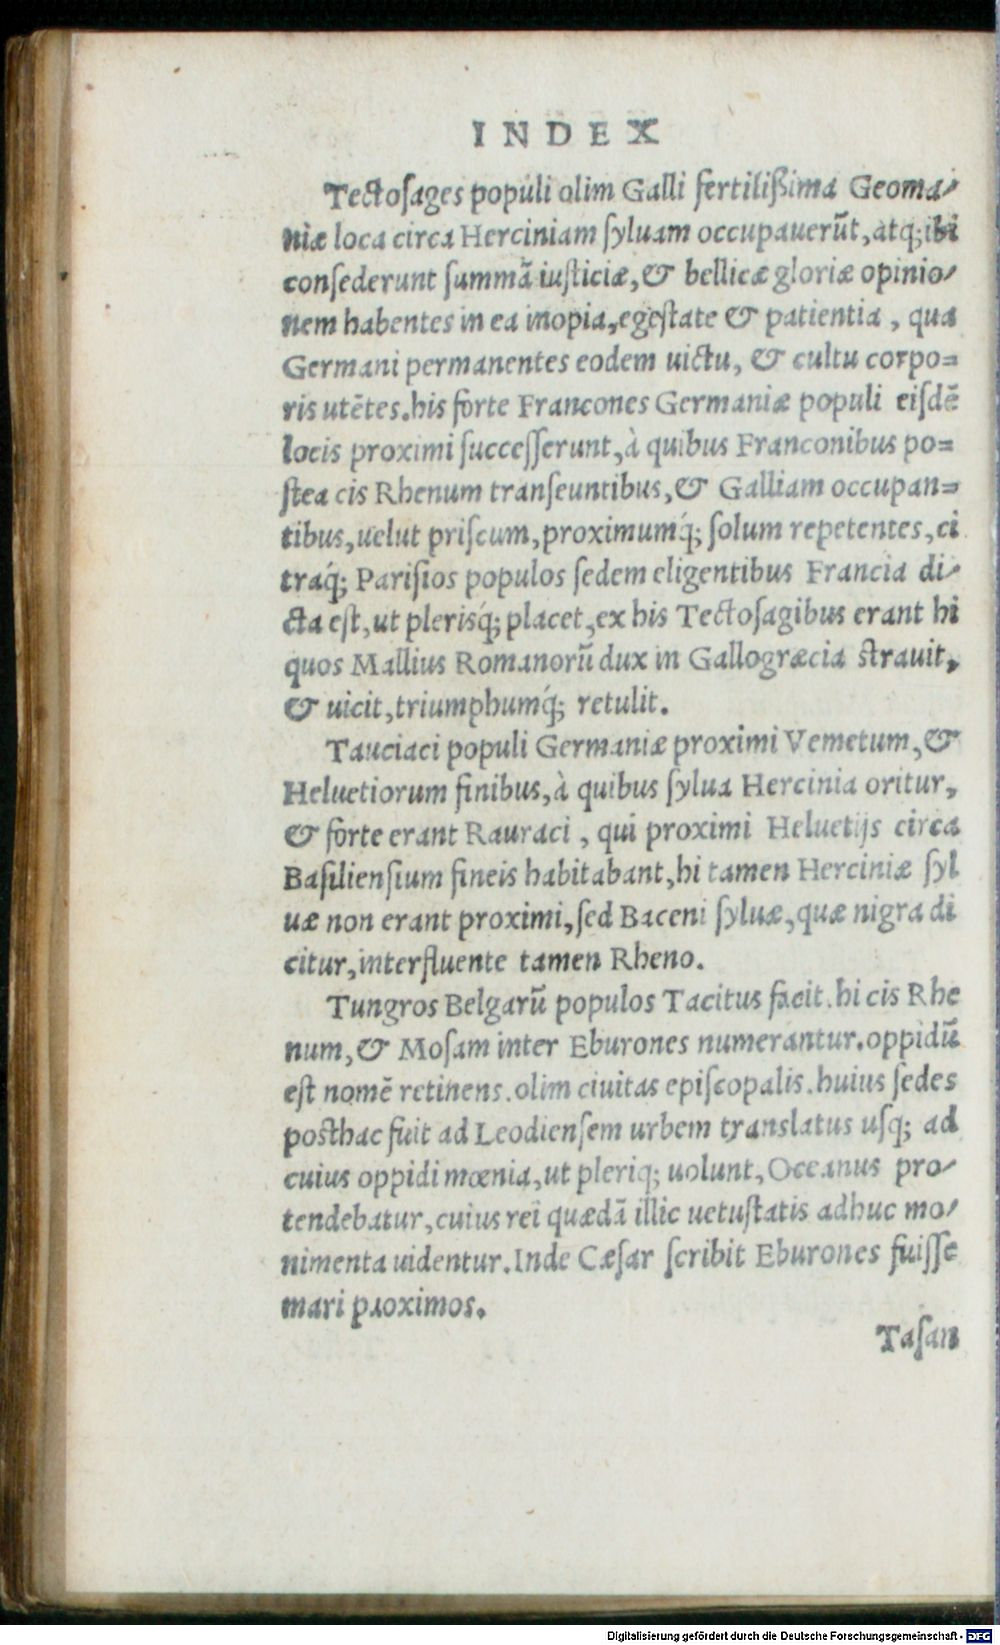 INDEX
Tectoſages populi olim Galli fertilißima Geoma⸗
niæ loca circa Herciniam ſyluam occupauerũt, atq; ibi
conſederunt ſummã iuſticiæ, & bellicæ gloriæ opinio⸗
nem habentes in ea inopia, egeſtate & patientia, qua
Germani permanentes eodem uictu, & cultu corpo⸗
ris utẽtes. his forte Francones Germaniæ populi eiſdẽ
locis proximi ſucceſſerunt, à quibus Franconibus po⸗
ſtea cis Rhenum tranſeuntibus, & Galliam occupan⸗
tibus, uelut priſcum, proximumq́; ſolum repetentes, ci
traq́; Pariſios populos ſedem eligentibus Francia di⸗
cta eſt, ut plerisq́; placet, ex his Tectoſagibus erant hi
quos Mallius Romanorũ dux in Gallogræcia strauit,
& uicit, triumphumq́; retulit.
Tauciaci populi Germaniæ proximi Vemetum, &
Heluetiorum finibus, à quibus ſylua Hercinia oritur,
& forte erant Rauraci, qui proximi Heluetijs circa
Baſilienſium fineis habitabant, hi tamen Herciniæ ſyl
uæ non erant proximi, ſed Baceni ſyluæ, quæ nigra di
citur, interfluente tamen Rheno.
Tungros Belgarũ populos Tacitus facit. hi cis Rhe
num, & Moſam inter Eburones numerantur. oppidũ
eſt nomẽ retinens. olim ciuitas epiſcopalis. huius ſedes
posthac fuit ad Leodienſem urbem translatus uſq; ad
cuius oppidi mœnia, ut pleriq; uolunt, Oceanus pro⸗
tendebatur, cuius rei quædã illic uetuſtatis adhuc mo⸗
nimenta uidentur. Inde Cæſar ſcribit Eburones fuiſſe
mari proximos.
Taſan
Digitalisierung gefördert durch die Deutsche Forschungsgemeinschaft - DFG